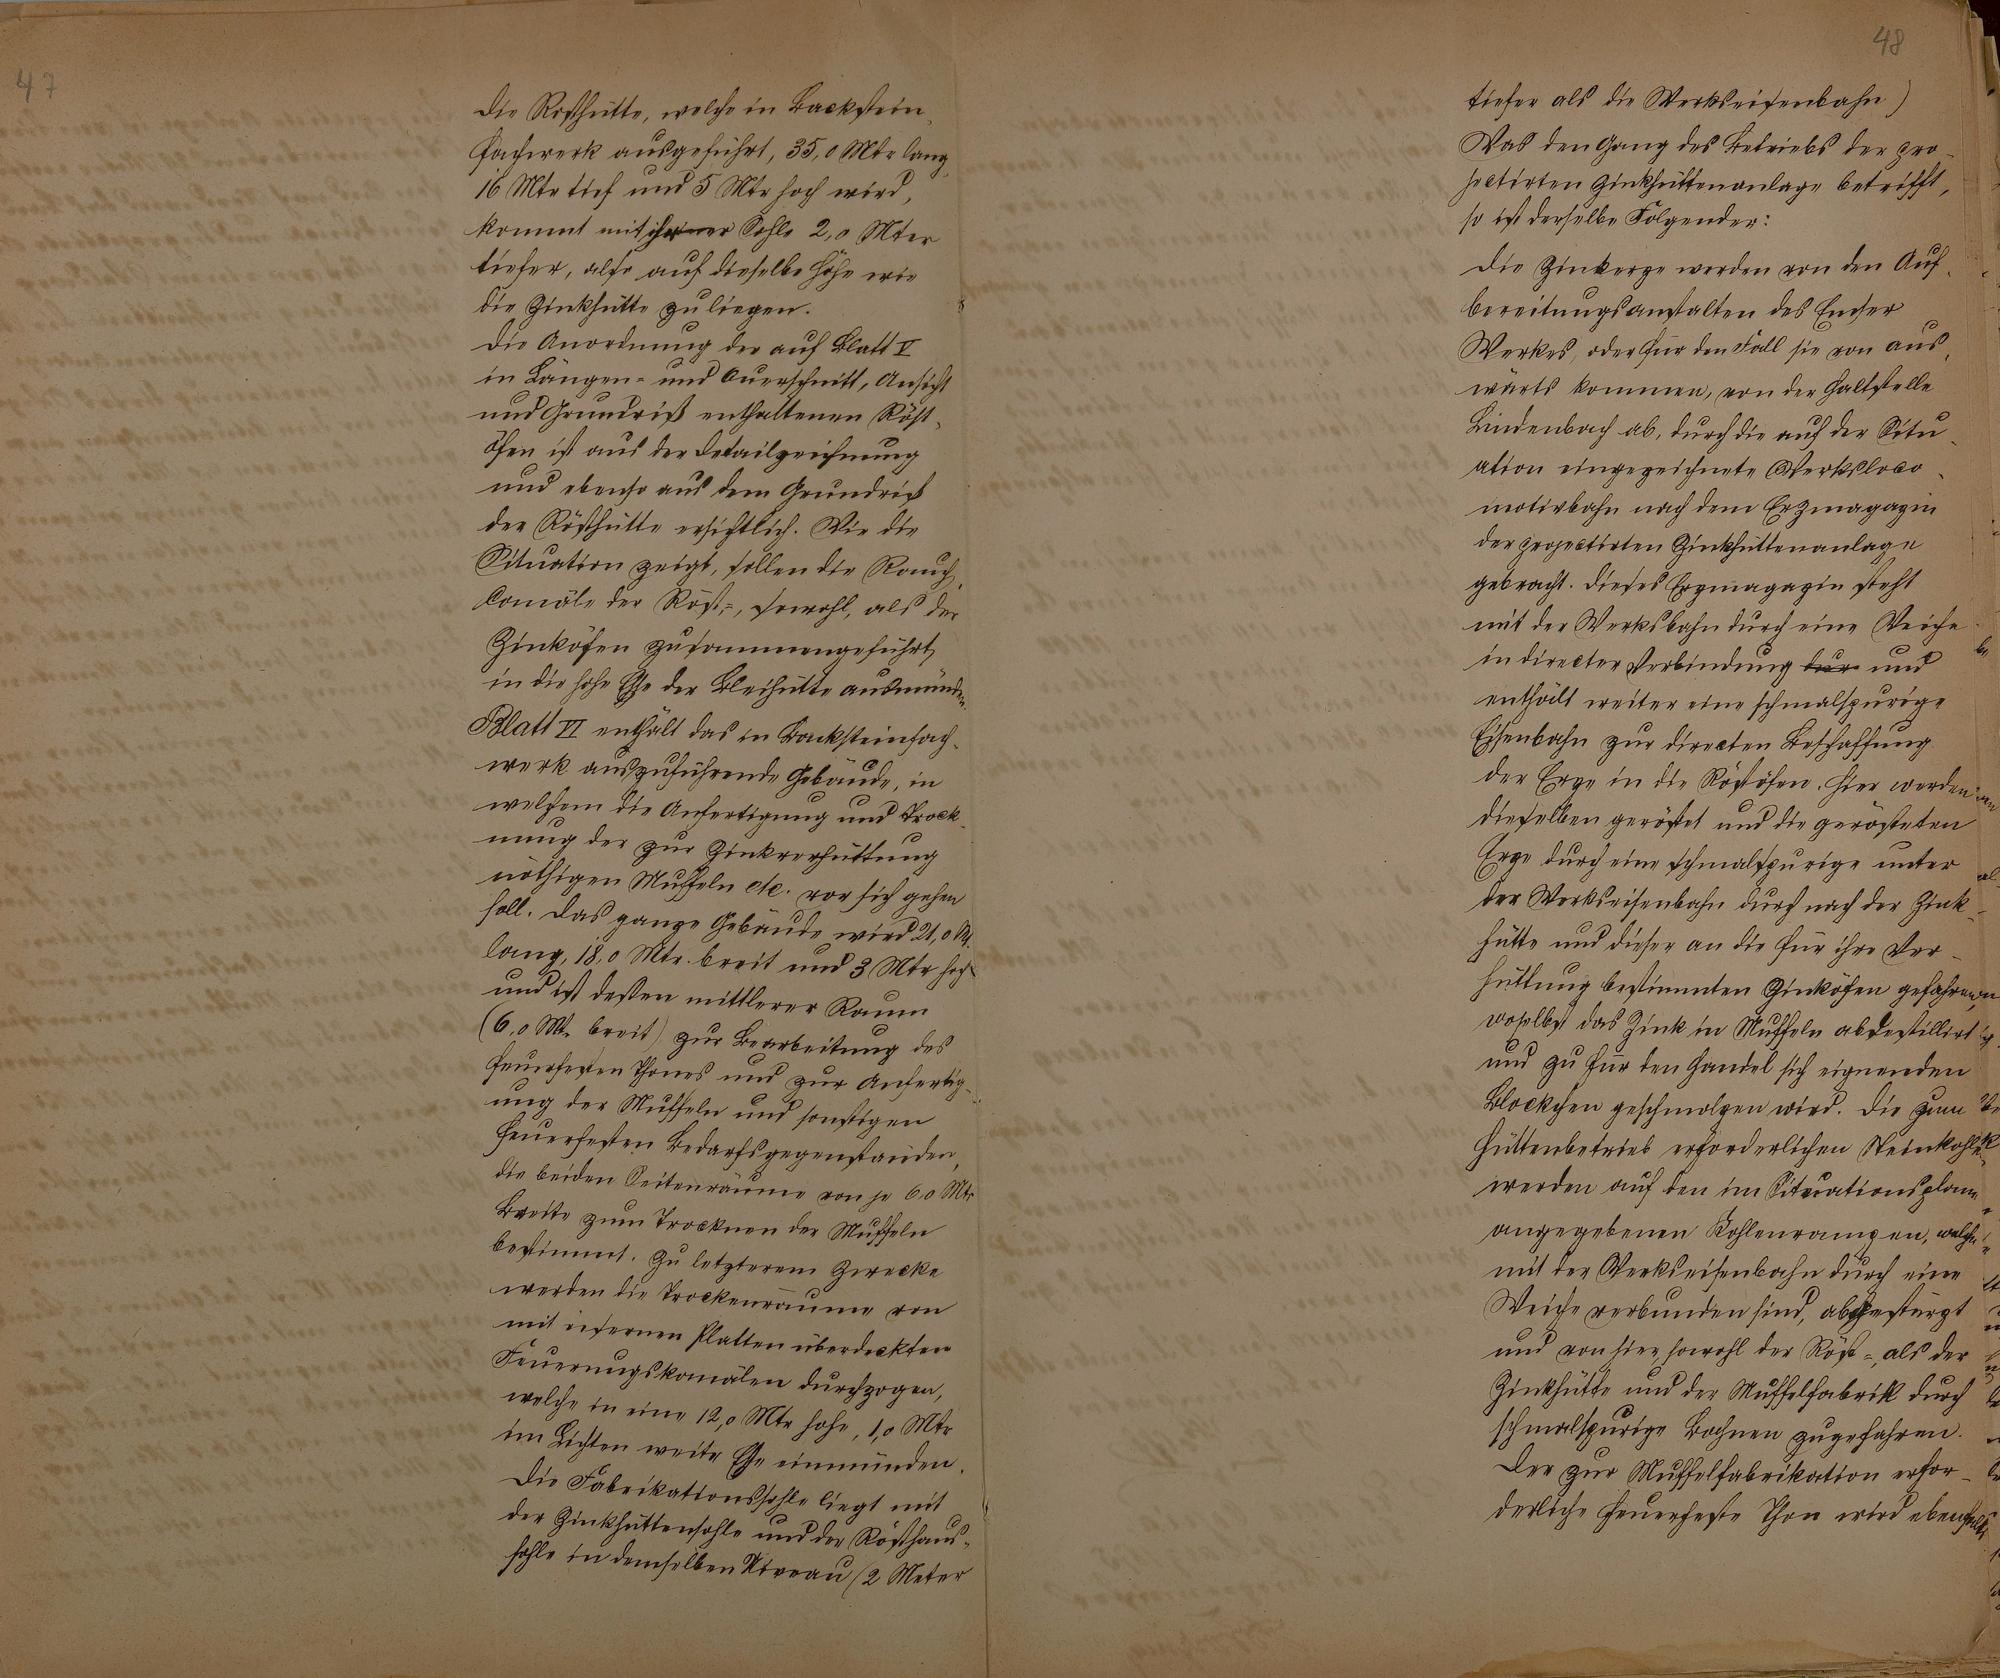 47
Die Rösthütte, welche in Backstein¬
fachwerk ausgeführt, 35,0 Mtr lang,
16 Mtr tief und 5 Mtr hoch wird,
kommt mit ihrer Sohle 2,0 Mter
tiefer, also auf dieselbe Höhe wie
die Zinkhütte zu liegen.
Die Anordnung der auf Blatt V
in Längen- und Querschnitt, Ansicht
und Grundriß enthaltenen Röst¬
öfen ist aus der Detailzeichnung
und ebenso aus dem Grundriß
der Rösthütte ersichtlich. Wie die
Situation zeigt, sollen die Rauch¬
canäle der Röst-, sowohl, als der
Zinköfen zusammengeführt,
in die hohe Esse der Bleihütte ausmünden.
Blatt VI enthält das in Backsteinfach¬
werk auszuführende Gebäude, in
welchem die Anfertigung und Trock¬
nung der zur Zinkverhüttung
nöthigen Muffeln etc. vor sich gehen
soll. Das ganze Gebäude wird 21,0 Mt.
lang, 18,0 Mtr. breit und 3 Mtr hoch
und ist dessen mittlerer Raum
(6,0 Mt. breit) zur Bearbeitung des
feuerfesten Thones und zur Anfertig¬
ung der Muffeln und sonstigen
feuerfesten Bedarfsgegenständen,
die beiden Seitenräume von je 6.0 Mtr
Breite zum Trocknen der Muffeln
bestimmt. Zu letzterem Zwecke
werden die Trockenräume von
mit eisernen Platten überdeckten
Feuerungskanälen durchzogen,
welche in eine 12,0 Mtr hohe, 1,0 Mtr
im Lichten weite Esse einmünden.
Die Fabrikationssohle liegt mit
der Zinkhüttensohle und der Rösthaus¬
sohle in demselben Niveau (2 Meter
48
tiefer als die Werkseisenbahn)
Was den Gang des Betriebs der pro¬
jectirten Zinkhüttenanlage betrifft,
so ist derselbe Folgender:
Die Zinkerze werden von den Auf¬
bereitungsanstalten des Emser
Werkes, oder für den Fall sie von aus¬
wärts kommen, von der Haltstelle
Lindenbach ab, durch die auf der Situ¬
ation eingezeichnete Werksloco¬
motivbahn nach dem Erzmagazin
der projectirten Zinkhüttenanlage
gebracht. Dieses Erzmagazin steht
mit der Werksbahn durch eine Weiche
in directer Verbindung dur und
enthält weiter eine schmalspurige
Eisenbahn zur directen Beschaffung
der Erze in die Röstöfen. Hier werden
dieselben geröstet und die gerösteten
Erze durch eine schmalspurige unter
der Werkseisenbahn durch nach der Zink¬
hütte und dieser an die für ihre Ver¬
hüttung bestimmten Zinköfen gefahren,
woselbst das Zink in Muffeln abdestillirt
und zu für den Handel sich eignenden
Blöckchen geschmolzen wird. Die zum
Hüttenbetrieb erforderlichen Steinkohlen
werden auf den im Situationsplane
angegebenen Kohlenrampen, welche
mit der Werkseisenbahn durch eine
Weiche verbunden sind, abgestürzt
und von hier, sowohl der Röst-, als der
Zinkhütte und der Muffelfabrik durch
schmalspurige Bahnen zugefahren.
Der zur Muffelfabrikation erfor¬
derliche feuerfeste Thon wird ebenfalls